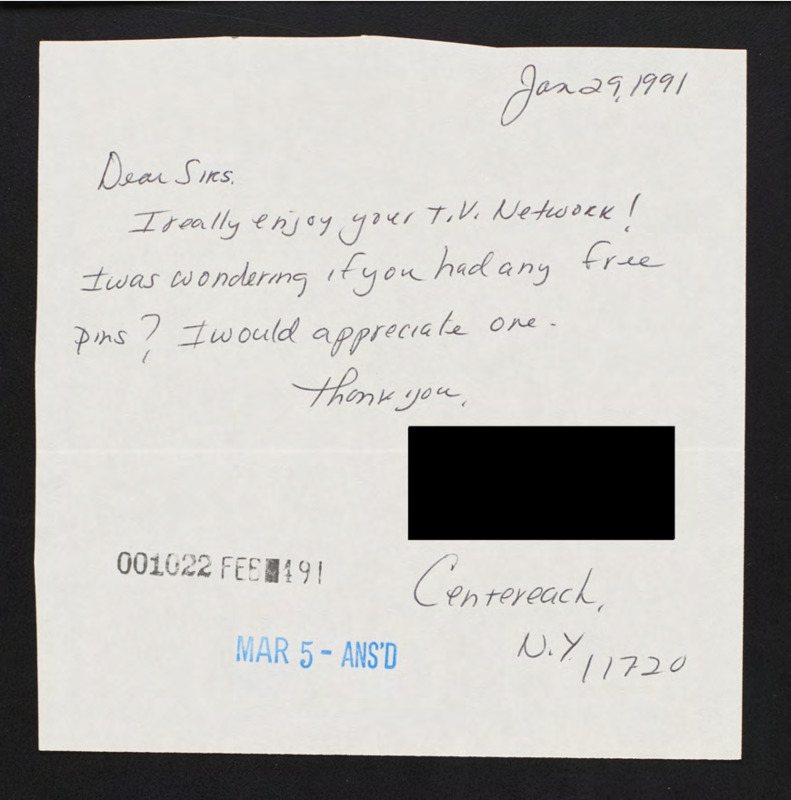 Jan 29, 1991
Dear Sirs.
I really enjoy your T.V. Network!
I was wondering if you had any free
pins? I would appreciate one.
Thank you,
001022 FEB 491
Centereach,
MAR 5 - ANS'D
N.Y. 11720